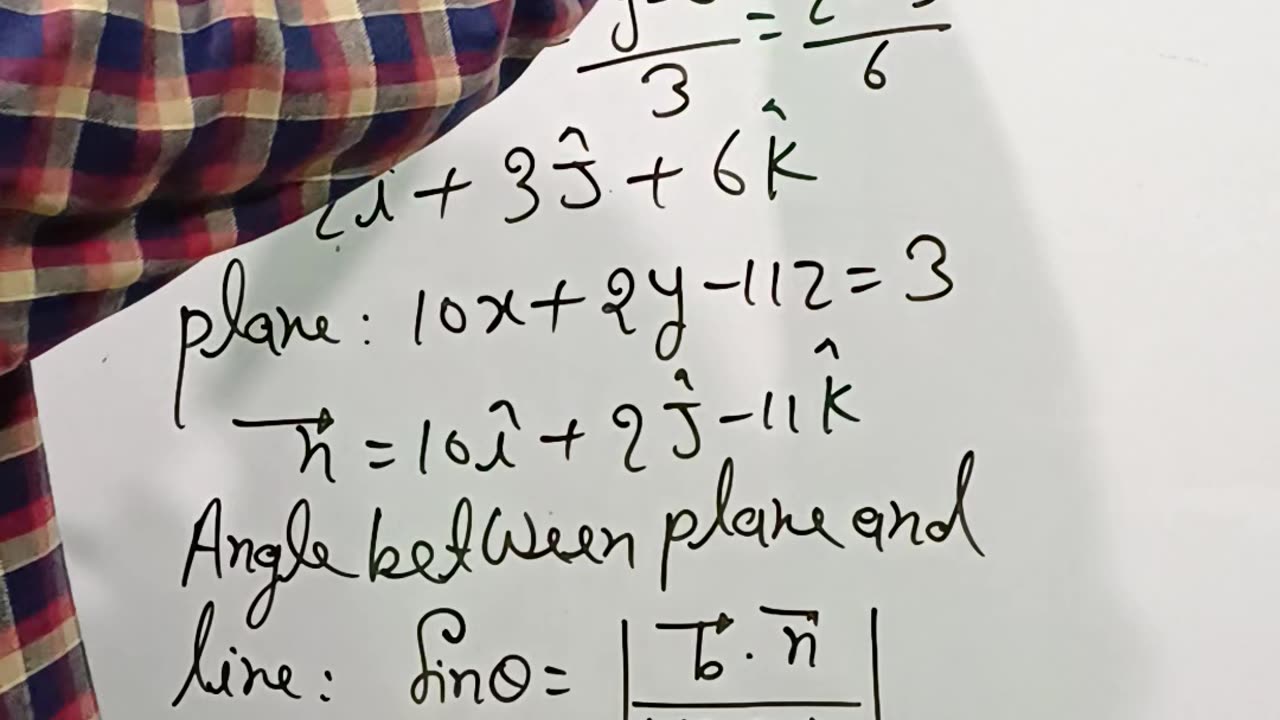 3 = 6
2î + 3ĵ + 6k̂
plane: 10x + 2y - 11z = 3
n⃗ = 10î + 2ĵ - 11k̂
Angle between plane and
line: Sinθ = | b⃗ . n⃗ |